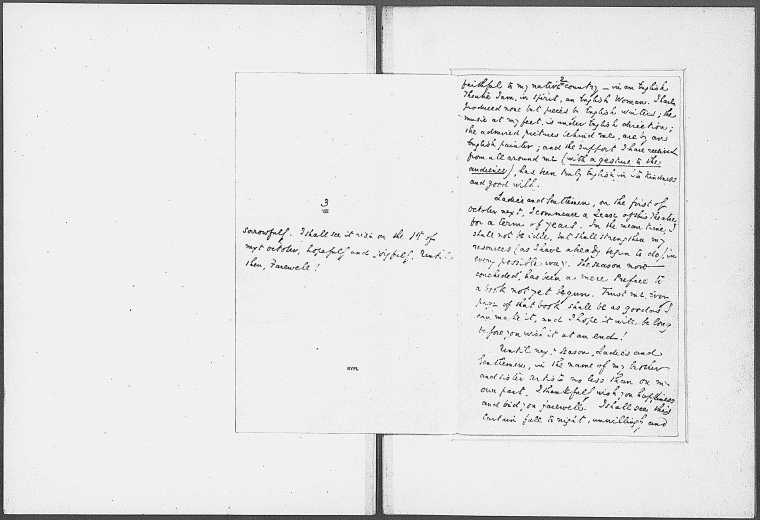 faithful to my native country — in an English
Theatre I am, in spirit, an English Woman. I have
produced none but pieces by English writers; the
music at my feet, is under English direction;
the admired pictures behind me, are by an
English painter; and the support I have received
from all around me (with a gesture to the
audience), has been truly English in its kindness
and good will.
Ladies and Gentlemen, on the first of
October next, I commence a Lease of this Theatre
for a term of years. In the mean time, I
shall not be idle, but shall strengthen my
resources (as I have already begun to do) in
every possible way. The season now
concluded, has been a mere Preface to
a book not yet begun. Trust me, every
page of that book shall be as good as I
can make it, and I hope it will be long
before you wish it at an end!
Until next season, Ladies and
Gentlemen, in the name of my brother
and sister artists no less than on my
own part, I thankfully wish you happiness
and bid you farewell. I shall see this
Curtain fall to night, unwillingly and
3
sorrowfully. I shall see it rise on the 1st of
next October, hopefully and joyfully. Until
then, Farewell!
NYPL